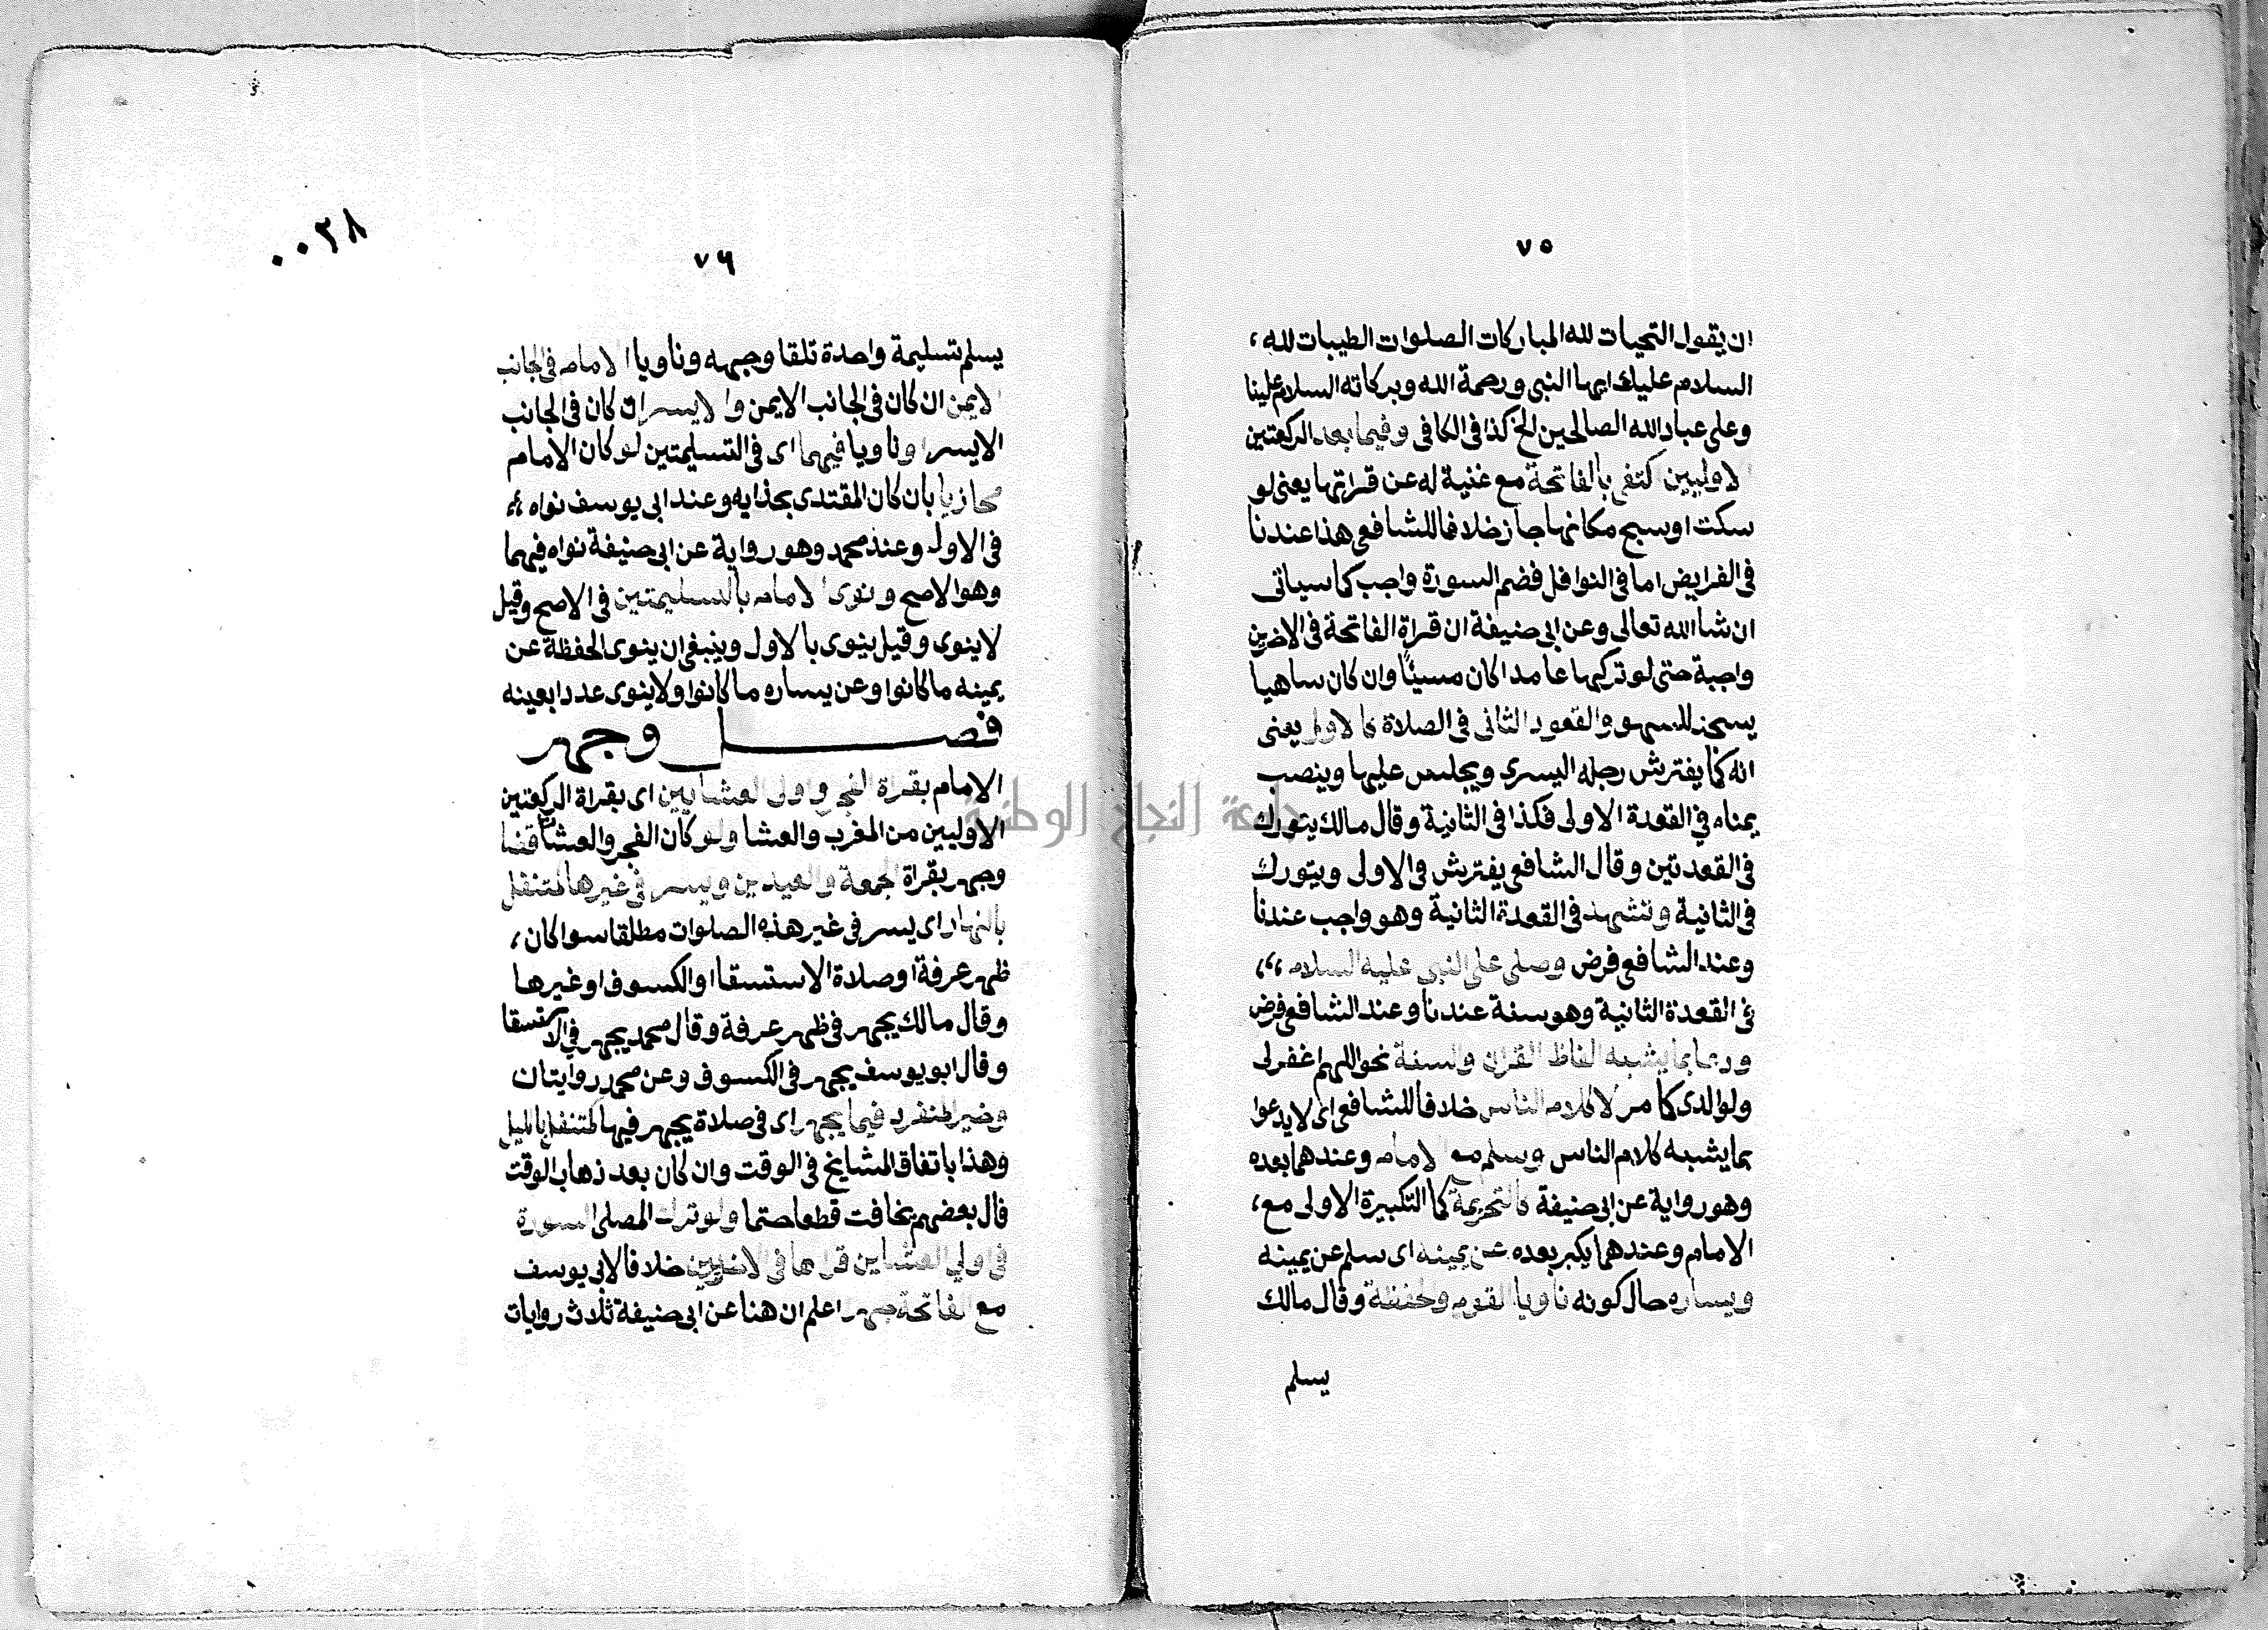 ٧٥
ان يقول التحيات لله المباركات الصلوات الطيبات لله،
السلام عليك ايها النبي ورحمة الله وبركاته السلام علينا
وعلى عباد الله الصالحين الخ كذا فى الكافى وفيما بعد الركعتين
الاوليين اكتفى بالفاتحة مع غنية له عن قراتها يعنى لو
سكت او سبح مكانها جاز خلافا للشافعى هذا عندنا
فى الفرايض اما فى النوافل فضم السورة واجب كما سياتى
ان شا الله تعالى وعن ابى حنيفة ان قراة الفاتحة فى الاخريين
واجبة حتى لو تركها عامدا كان مسيئا وان كان ساهيا
يسجد للسهو والقعود الثانى فى الصلاة كالاول يعنى
انه كما يفترش رجله اليسرى ويجلس عليها وينصب
يمناه في القعدة الاولى فكذا فى الثانية وقال مالك يتورك
فى القعدتين وقال الشافعى يفترش فى الاولى ويتورك
فى الثانية وتشهد فى القعدة الثانية وهو واجب عندنا
وعند الشافعى فرض وصلى على النبى عليه السلام ،،
فى القعدة الثانية وهو سنة عندنا وعند الشافعى فرض
ودعا بما يشبه الفاظ القران والسنة نحو اللهم اغفر لى
ولوالدى كما مر لا كلام الناس خلافا للشافعى اى لا يدعوا
بما يشبه كلام الناس وسلم مع الامام وعندهما بعده
وهو رواية عن ابى حنيفة كالتحريمة كما التكبيرة الاولى مع،
الامام وعندهما يكبر بعده عن يمينه اى سلم عن يمينه
ويساره حال كونه ناويا القوم والحفظة وقال مالك
يسلم
٠٠٣٨
٧٦
يسلم تسليمة واحدة تلقا وجهه وناويا الامام فى الجانب
الايمن ان كان فى الجانب الايمن والايسر ان كان فى الجانب
الايسر وناويا فيهما اى فى التسليمتين لو كان الامام
محازيا بان كان المقتدى بحذايه وعند ابى يوسف نواه ،،
فى الاول وعند محمد وهو رواية عن ابى حنيفة نواه فيهما
وهو الاصح ونوى الامام بالتسليمتين فى الاصح وقيل
لا ينوى وقيل ينوى بالاول وينبغى ان ينوى الحفظة عن
يمينه ما كانوا وعن يساره ما كانوا ولا ينوى عددا بعينه
فصل وجهر
الامام بقراة الفجر واولى العشايين اى بقراة الركعتين
الاوليين من المغرب والعشا ولو كان الفجر والعشا قضا
وجهر بقراة الجمعة والعيدين ويسر فى غيرها كمتنفل
بالنهار اى يسر فى غير هذه الصلوات مطلقا سوا كان،
ظهر عرفة او صلاة الاستسقا او الكسوف او غيرها
وقال مالك يجهر فى ظهر عرفة وقال محمد يجهر فى الاستسقا
وقال ابو يوسف يجهر فى الكسوف وعن محمد روايتان
وخير المنفرد فيما يجهر اى فى صلاة يجهر فيها كمتنفل بالليل
وهذا باتفاق المشايخ فى الوقت وان كان بعد ذهاب الوقت
قال بعضهم يخافت قطعا حتما ولو ترك المصلى السورة
فى اولي العشاين قراها فى الاخريين خلافا لابى يوسف
مع الفاتحة جهرا اعلم ان هنا عن ابى حنيفة ثلاث روايات
جامعة النجاح الوطنية